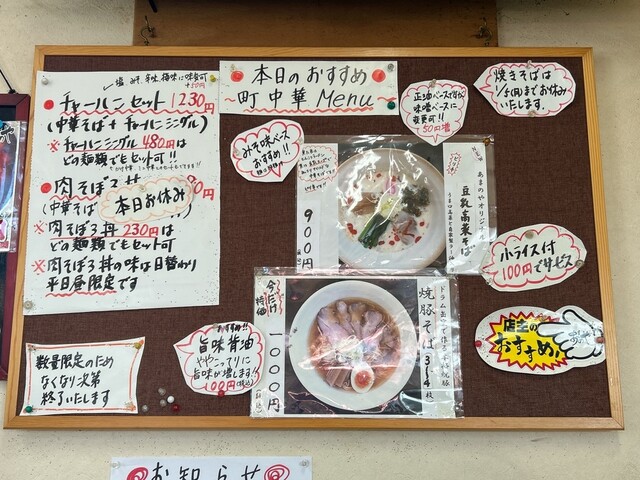 本日のおすすめ
~町中華Menu
チャーハンセット 1230円
(中華そば+チャーハンシングル)
※チャーハンシングル480円は
どの麺類でもセット可!!
肉そぼろ丼
(中華そば
本日お休み
※肉そぼろ丼230円は
どの麺類でもセット可
※肉そぼろ丼の味は日替わり
平日昼限定です
数量限定のため
なくなり次第
終了いたします
みそ味ベース
おすすめ!!
味噌ベースに
変更可!!
50円増
焼きそばは
お休み
いたします
豆乳高菜そば
900円
小ライス付
100円でサービス
店主の
おすすめ!
今だけ
特価
1000円
焼豚そば 3~4枚
おすすめ!!
旨味背油
ややこってりに
旨味が増します!!
100円(税込)
お知らせ